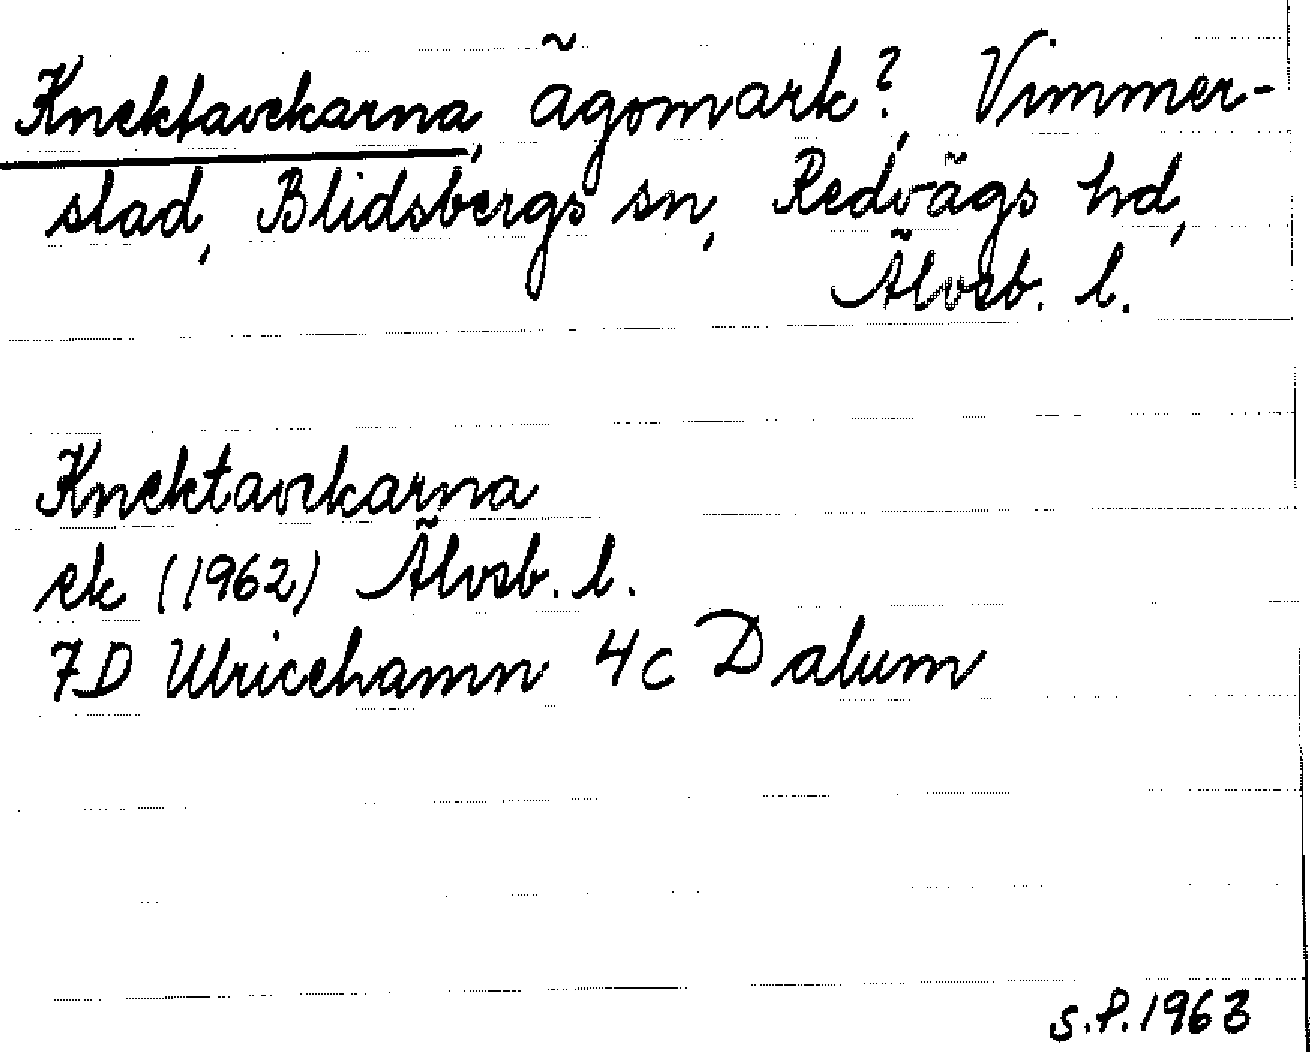 Knektavekarna, ägomark?, Vimmer-
stad, Blidsbergs sn, Redvägs hd,
Älvsb. l.
Knektavekarna
ek (1962) Älvsb. l.
7D Ulricehamn 4c Dalum
S.P. 1963